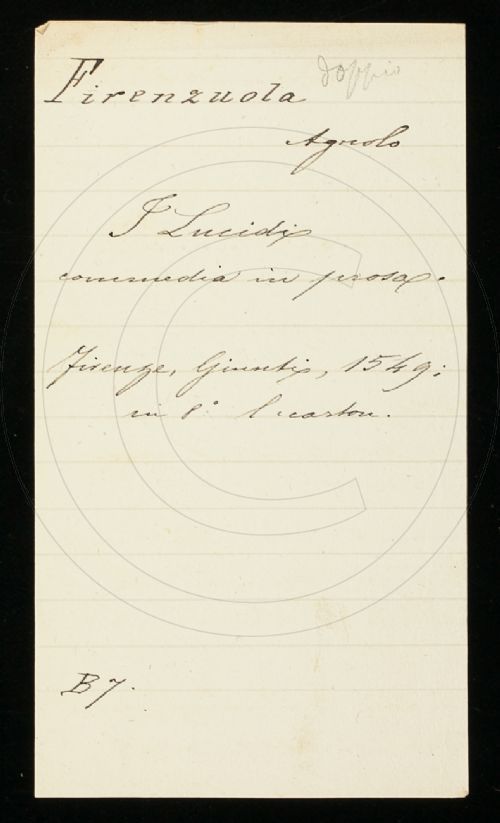 doppio
Firenzuola
Agnolo
I Lucidi
commedia in prosa.
Firenze, Giunti, 1549;
in 8° l. carton.
B 7.